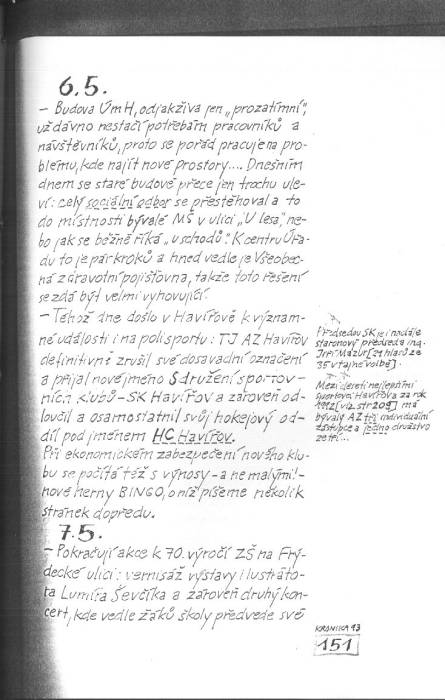 6.5.
– Budova ÚmH, odjakživa jen „prozatímní",
už dávno nestačí potřebám pracovníků a
návštěvníků, proto se pořád pracuje na pro-
blému, kde najít nové prostory.... Dnešním
dnem se staré budově přece jen trochu ule-
ví: celý sociální odbor se přestěhoval a to
do místností bývalé MŠ v ulici „U lesa", ne-
bo jak se běžně říká „u schodů". K centru Úřa-
du to je pár kroků a hned vedle je Všeobec-
ná zdravotní pojišťovna, takže toto řešení
se zdá být velmi vyhovující.
– Téhož dne došlo v Havířově k význam-
né události i na poli sportu: TJ AZ Havířov
definitivně zrušil své dosavadní označení
a přijal nové jméno Sdružení sportov-
ních klubů – SK Havířov a zároveň od-
loučil a osamostatnil svůj hokejový od-
díl pod jménem HC Havířov.
Při ekonomickém zabezpečení nového klu-
bu se počítá též s výnosy – a ne malými! –
nové herny BINGO, o níž píšeme několik
stránek dopředu.
Předsedou SK je i nadále
staronový předseda ing.
Jiří Mazur [21 hlasů ze
35 v tajné volbě].
Mezi deseti nejlepšími
sportovci Havířova za rok
1992 [viz. str. 209] má
bývalý AZ tři individuální
zástupce a jedno družstvo
7.5.
– Pokračují akce k 70. výročí ZŠ na Frý-
decké ulici: vernisáž výstavy ilustráto-
ra Lumíra Ševčíka a zároveň druhý kon-
cert, kde vedle žáků školy předvede své
KRONIKA 93
151